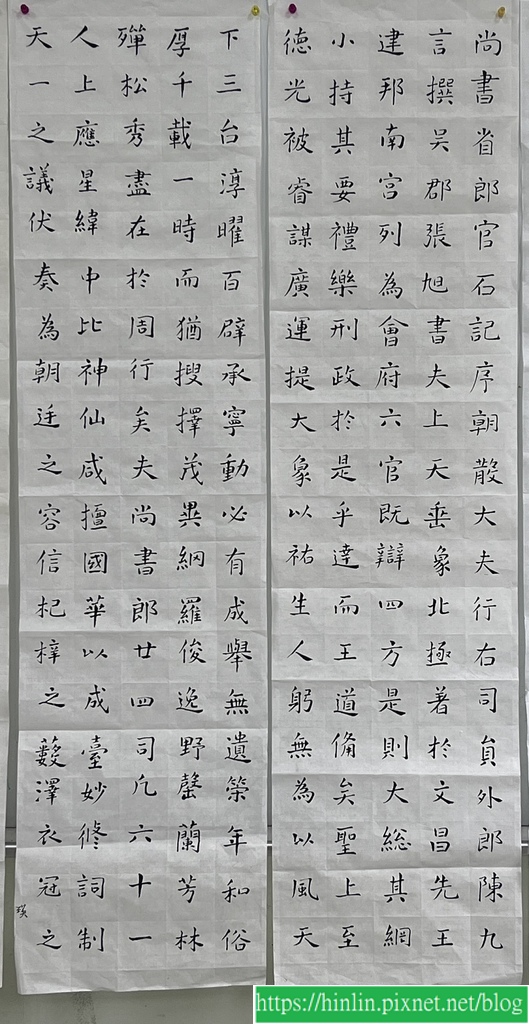 尚書省郎官石記序朝散大夫行右司員外郎陳九
言撰吳郡張旭書夫上天垂象北極著於文昌先王
建邦南宮列為會府六官既辯四方是則大總其網
小持其要禮樂刑政於是乎達而王道備矣聖上至
德光被睿謀廣運提大象以祐生人躬無為以風天
下三台淳曜百辟承寧動必有成舉無遺策年和俗
厚千載一時而猶搜擇茂異網羅俊逸野罄蘭芳林
殫松秀盡在於周行矣夫尚書郎廿四司凡六十一
人上應星緯中比神仙咸擅國華以成臺妙修詞制
天一之議伏奏為朝廷之容信杞梓之藪澤衣冠之
https://hinlin.pixnet.net/blog